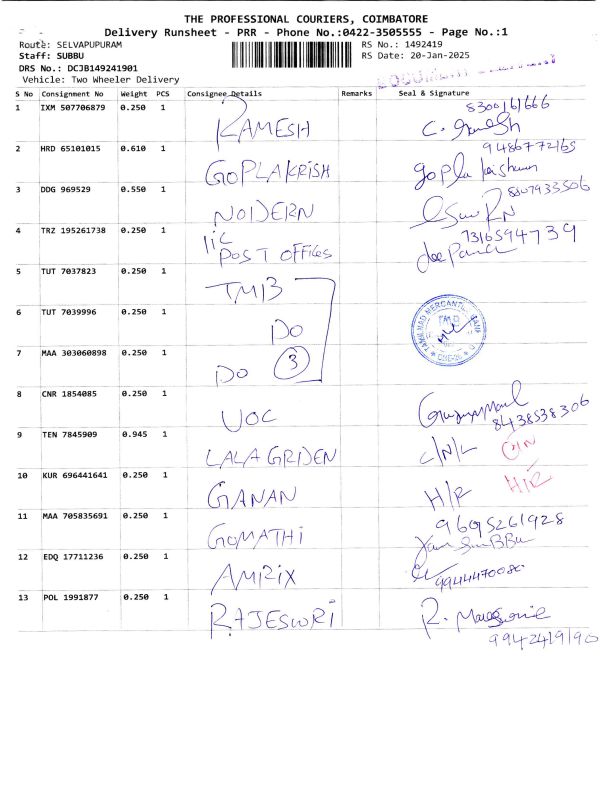 THE PROFESSIONAL COURIERS, COIMBATORE
Delivery Runsheet - PRR - Phone No.:0422-3505555 - Page No.:1
Route: SELVAPUPURAM RS No.: 1492419
Staff: SUBBU RS Date: 20-Jan-2025
DRS No.: DCJB149241901
Vehicle: Two Wheeler Delivery
S No Consignment No Weight PCS Consignee Details Remarks Seal & Signature
8300161666
1 IXM 507706879 0.250 1 RAMESH
9486772165
2 HRD 65101015 0.610 1 GOPLAKRISH
8807933506
3 DDG 969529 0.550 1 NOIDERN
7316594739
4 TRZ 195261738 0.250 1 POST OFFICES
5 TUT 7037823 0.250 1 TMB
6 TUT 7039996 0.250 1 DO
7 MAA 303060898 0.250 1 DO 3
8 CNR 1854085 0.250 1 UOC
8438538306
9 TEN 7845909 0.945 1 LALA GRIDEN C/N/L
10 KUR 696441641 0.250 1 GANAN H/R H/R
11 MAA 705835691 0.250 1 GOMATHI 9695261928
12 EDQ 17711236 0.250 1 AMRIX 9944470080
13 POL 1991877 0.250 1 RAJESWRI
9942419190